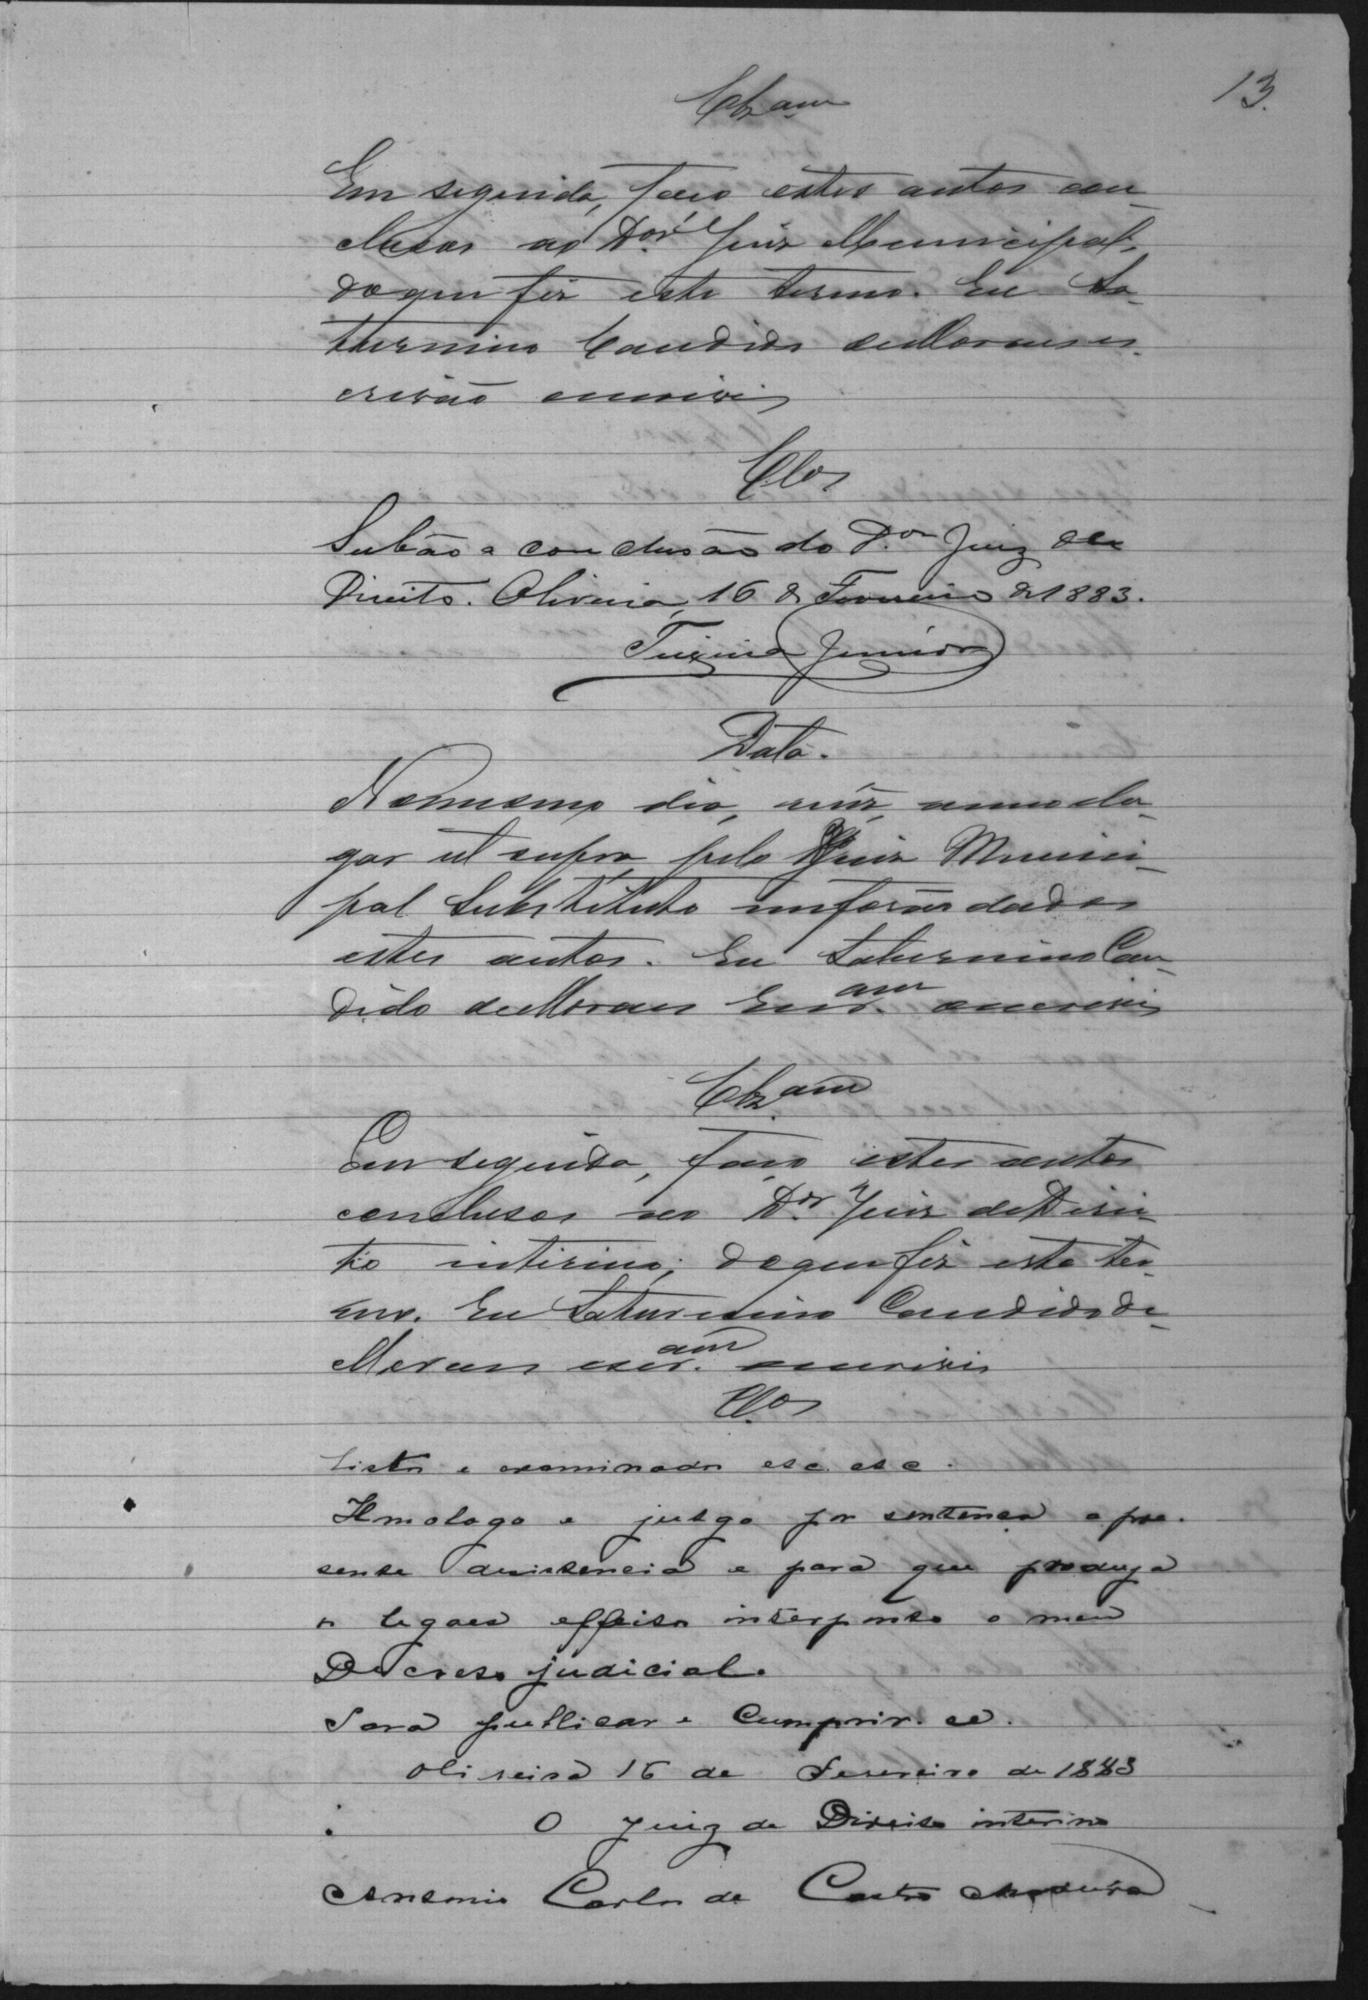 13.
Clz.am
Em seguida, faço estes autos con-
clusos ao Dor. Juiz Municipal,
do que fiz este termo. Eu Sa-
turnino Candido de Moraes es-
crivão escrevi
Clos
Subão a conclusão do Dor Juiz de
Direito. Oliveira, 16 de Fevereiro de 1883.
Teixeira Junior
Data.
No mesmo dia, mez, anno e lu-
gar ut supra, pelo Juiz Munici-
pal Substituto me forão dados
estes autos. Eu Saturnino Can-
dido de Moraes Escr.am escrevi
Clz.am
Em seguida, faço estes autos
conclusos ao Dr. Juiz de Direi-
to interino; do que fiz este ter-
mo. Eu Saturnino Candido de
Moraes escr.am escrevi
Cl.os
Vistos e examinados etc etc.
Homologo e julgo por sentença a pre-
sente desistencia e para que produza
os legaes effeitos interponho o meu
Decreto judicial.
Para publicar e cumprir-se.
Oliveira 16 de Fevereiro de 1883
O Juiz de Direito interino
Antonio Carlos de Castro Madura